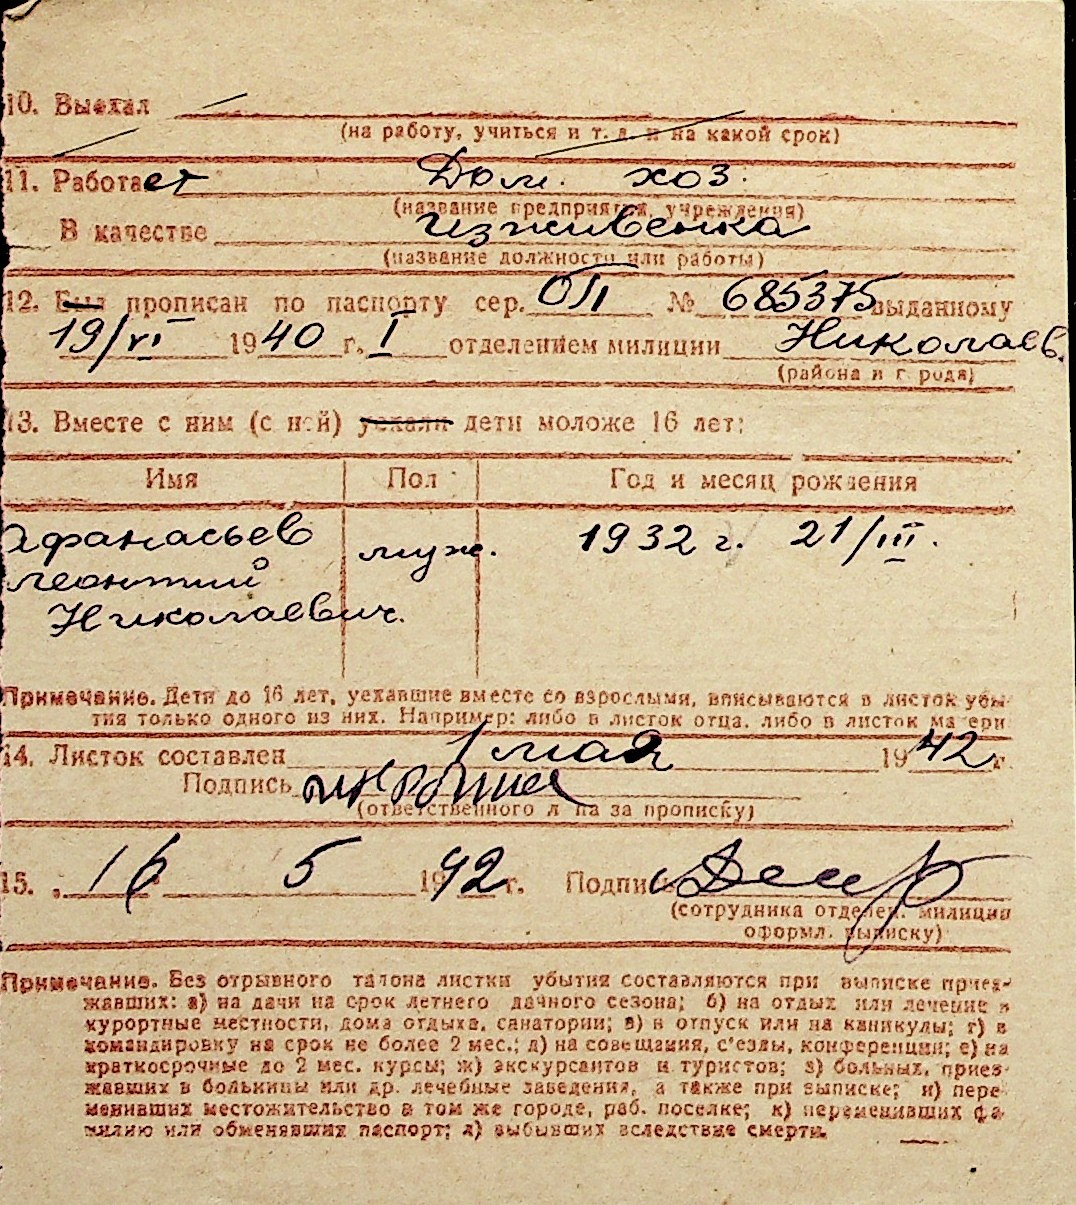 10. Выехал
(на работу, учиться и т. д. и на какой срок)
11. Работает Дом. хоз.
(название предприятия, учреждения)
В качестве иждивенка
(название должности или работы)
12. Был прописан по паспорту сер. ОП № 685375 выданному
19/VI 1940 г. I отделением милиции Николаев.
(района и города)
13. Вместе с ним (с ней) уехали дети моложе 16 лет:
Имя Пол Год и месяц рождения
Афанасьев муж. 1932 г. 21/III.
Леонтий
Николаевич.
Примечание. Дети до 16 лет, уехавшие вместе со взрослыми, вписываются в листок убы-
тия только одного из них. Например: либо в листок отца, либо в листок матери
14. Листок составлен 1 мая 1942 г.
Подпись
(ответственного л па за прописку)
15. „ 16 5 1942 г. Подпись
(сотрудника отделен. милиции
оформл. выписку)
Примечание. Без отрывного талона листки убытия составляются при выписке приез-
жавших: а) на дачи на срок летнего дачного сезона; б) на отдых или лечение в
курортные местности, дома отдыха, санатории; в) в отпуск или на каникулы; г) в
командировку на срок не более 2 мес.; д) на совещания, с'езды, конференции; е) на
краткосрочные до 2 мес. курсы; ж) экскурсантов и туристов; з) больных, приез-
жавших в больницы или др. лечебные заведения, а также при выписке; и) пере-
менивших местожительство в том же городе, раб. поселке; к) переменивших фа-
милию или обменявших паспорт; л) выбывших вследствие смерти.